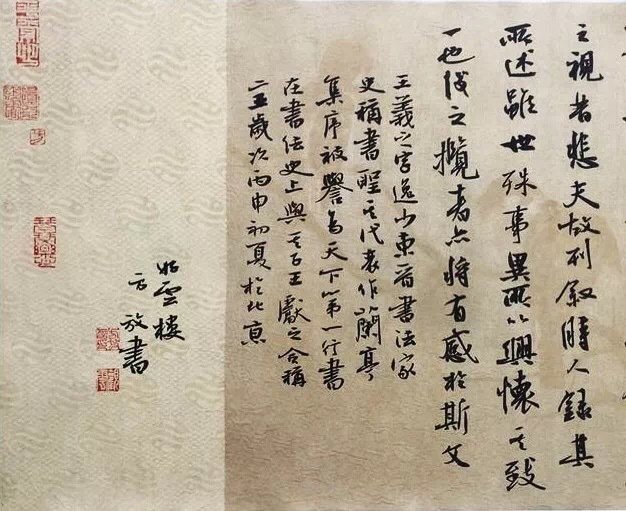 之視昔悲夫故列叙時人錄其
所述雖世殊事異所以興懷其致
一也後之攬者亦將有感於斯文
王羲之字逸少東晋書法家
史稱書聖其代表作蘭亭
集序被譽為天下第一行書
在書法史上與其子王獻之合稱
二王歲次丙申初夏於北京
如雲樓
方放書